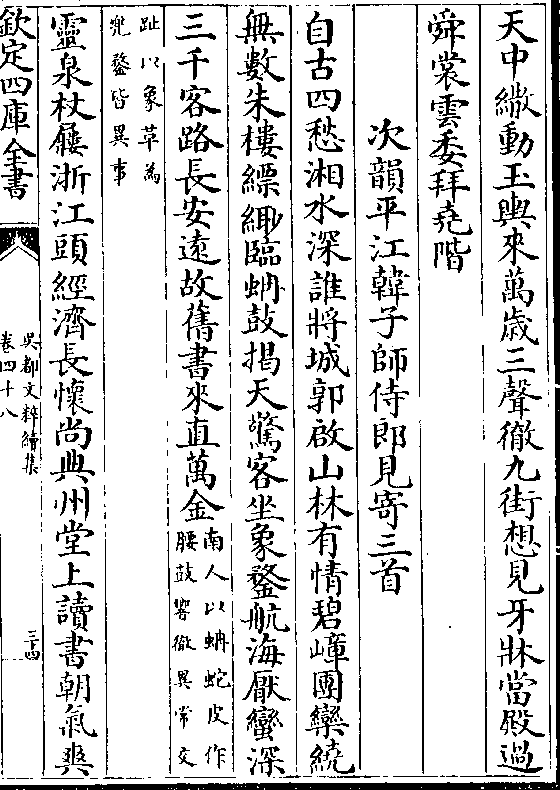 天中繖動玉輿來萬歲三聲徹九街想見牙牀當殿過
舜裳雲委拜堯階
次韻平江韓子師侍郎見寄三首
自古四愁湘水深誰將城郭啟山林有情碧嶂團欒繞
無數朱樓縹緲臨蚺鼓揭天驚客坐象鍪航海厭蠻深
三千客路長安遠故舊書來直萬金
南人以蚺蛇皮作
腰鼓響徹異常交
趾以象革為
兜鍪皆異事
靈泉杖屨浙江頭經濟長懷尚典州堂上讀書朝氣爽
欽定四庫全書
吳都文粹續集
卷四十八
三四